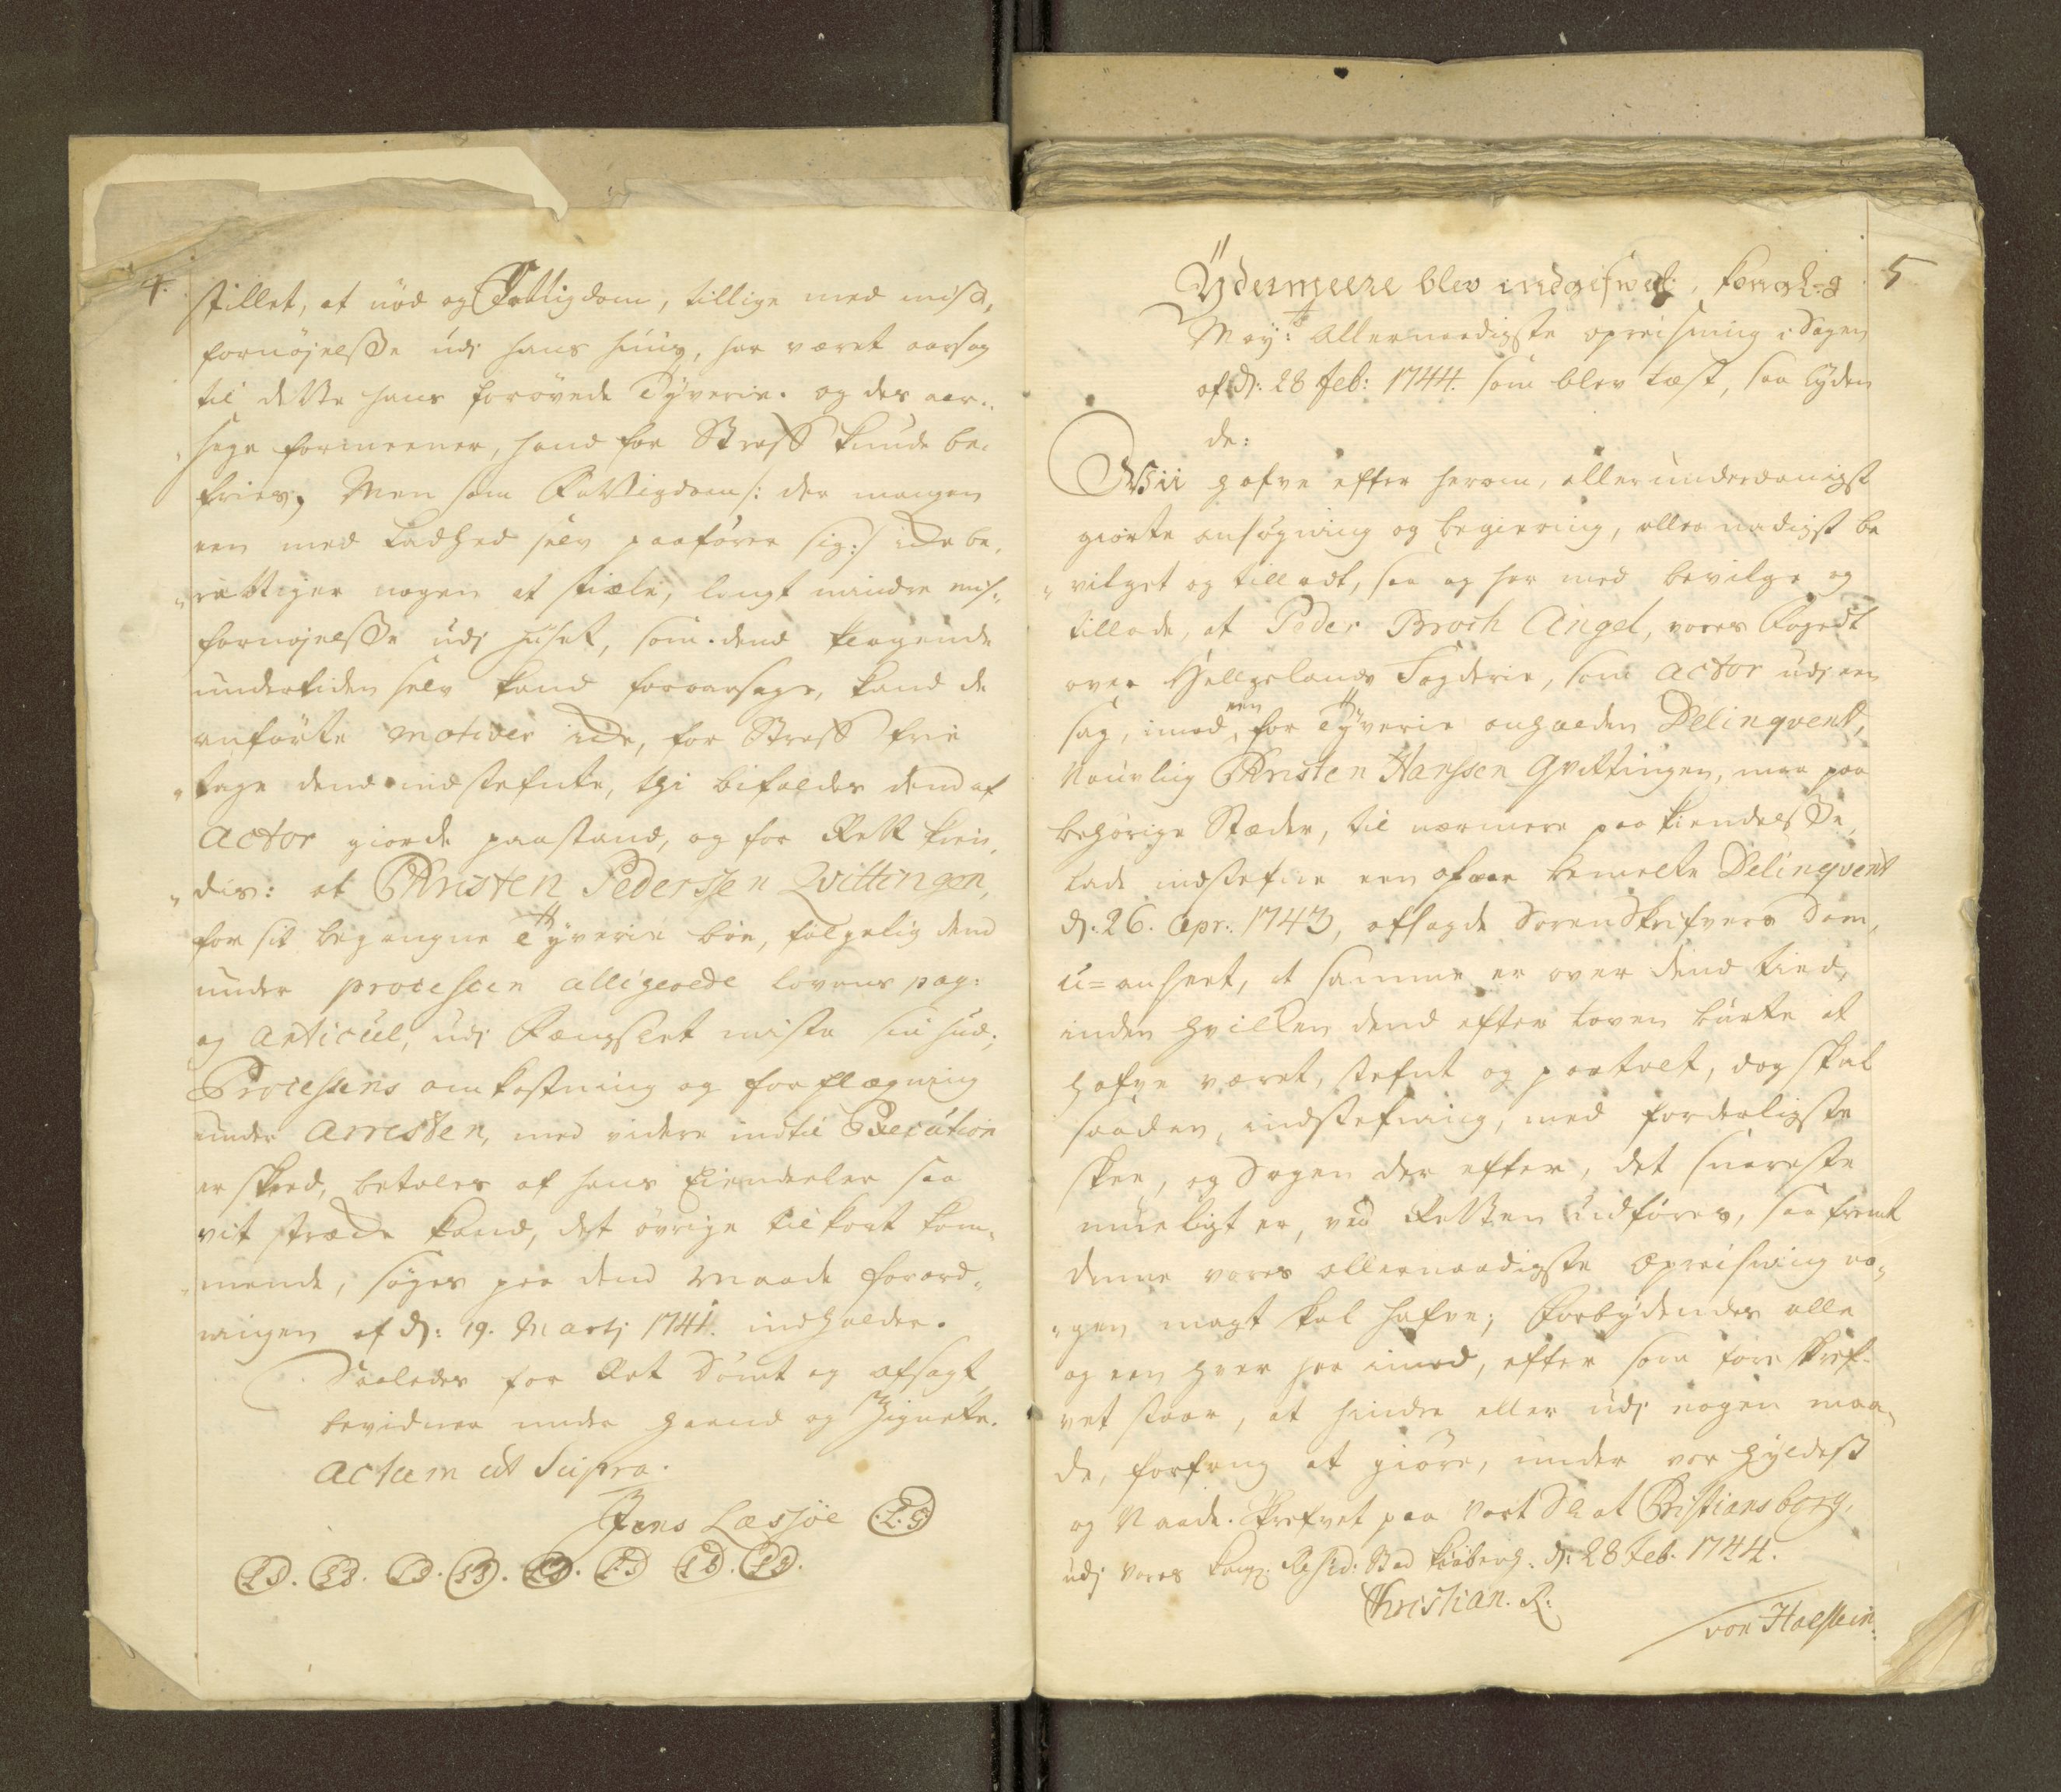 4.
stillet, at nød og Fattigdom, tillige med mis„
fornøjelsse udj hans Huus, har været aarsag
til dette hans forøvede Tyverie. og des aar„
„sage formeener, hand for Straff kunde be„
fries, Men som Fattigdom /: der mangen
een med Ladhed selv paafører sig :/ icke be„
„rættiger nogen at stiæle, langt mindre mis„
fornøjelsse udj Huset, som dend klagende
undertiden selv kand foraarsage, kand de
anførte motiver icke, for Straff frie
„tage dend indstefnte, thi bifaldes dend af
Actor giorde paastand, og for Rett kien„
„dis: at Christen Pederssen Qvittingen,
for sit begangne Tyverie bør, følgelig dend
under processen alligerede lovens pag:
og Articul, udj Fængslet miste sin Hud;
Processens omkostning og forflægning
under Arresten, med videre indtil Execution
er skeed, betales af hans Eiendeeler saa
vit strække kand, det øvrige til kort kom„
„mende, søges paa dend Maade Forord„
ningen af d: 19. Martj 1741. indholder.
Saaledes for Ret Dømt og afsagt
bevidner under Haand og Zignete.
Actum ut Supra.
Jens Læssøe L.S
LS. LS. LS. LS. LS. LS LS. LS.
5
Ydermeere blev
May: Allernaadigste opreisning i Sagen
af d: 28 Feb: 1744. som blev læst, saa lyden
de:
Wii hafve efter herom, allerunderdanigst
giorte ansøgning og begiering, aller naadigst be
„vilget og tilladt, saa og her med bevilge og
tillade, at Peder Broch Angel, vores Fogedt
over Hellgelands Fogderie, som Actor udj een
sag, imod, een for Tyverie anholden Delinqvent,
Naunlig Christen Hanssen Qvittingen, maa paa
behørige Stæder, til nærmere paa kiendelsse,
lade indstefne een ofver bemelte Delinqvent
d: 26. Apr: 1743, afsagde Sorenskrifvers Dom,
u=anseet, at samme er over dend Tiid,
inden hvilken dend efter loven burte at
hafve været, stefnt og paatalt, dog skal
saadan, indstefning, med forderligste
skee, og Sagen der efter, det snareste
mueligt er, ved Retten udføres, saa fremt
denne vores allernaadigste Opreisning no„
„gen magt skal hafve; Forbydendes alle
og een hver her imod, efter som foreskref„
vet staar, at hindre eller udj nogen maa„
de, forfang at giøre, under vor Hyldest
og Naade. Skrefvet paa vort Slot Christiansborg,
udj vores Kongl: Resid: Stad Kiøbenh: d: 28 Feb. 1744.
Christian. R.
von Holstein.